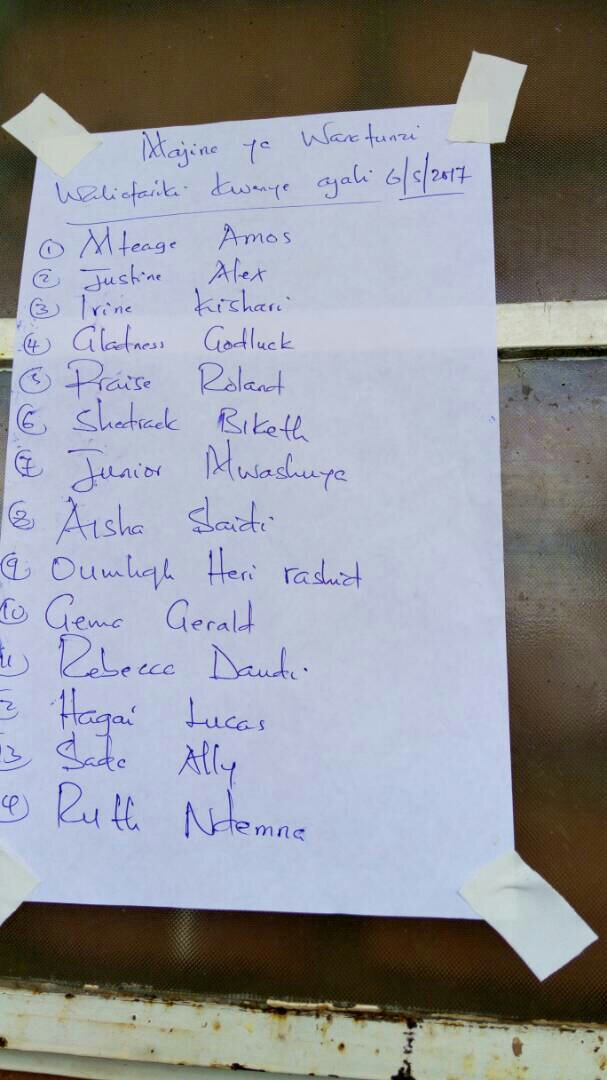 Majina ya Wanafunzi
Waliofariki kwenye ajali 6/5/2017
① Mteage Amos
② Justine Alex
③ Irine Kishari
④ Gladness Godluck
⑤ Praise Roland
⑥ Shadrack Biketh
⑦ Junior Mwashuya
⑧ Aisha Saidi
⑨ Heri rashid
⑩ Gema Gerald
11 Rebecca Daudi
2 Hagai Lucas
3 Sada Ally
4 Ruth Ndemna